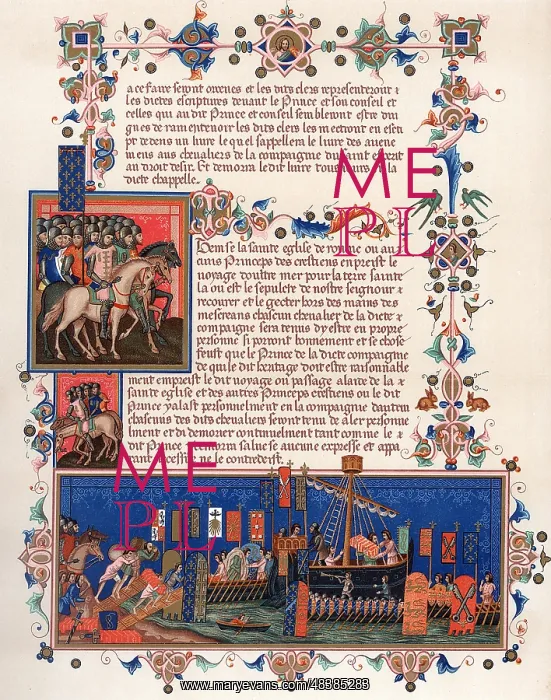 ace faire seront ordenes et les dits clers representeront &
les dictes escriptures devant le Prince et son conseil et
celles qui au dit Prince et conseil sembleront estre di
gnes de ramentevoir les dits clers les metront en escri
pt dedens un livre le quel s'appellera le livre des avene
mens aus chevaliers de la compaignie du saint esprit
au droit desir. Et demorra le dit livre tous la
dicte chappelle.
Item se la sainte eglise de romme ou au
cuns Princeps des crestiens enpreist le
voyage doultre mer pour la terre sainte
la ou est le sepulcre de nostre seignour &
recourer et le gecter hors des mains des
mescreans chascun chevalier de la dicte &
compaigne sera tenus dy estre en propre
personne si porront bonnement et se chose
feust que le Prince de la dicte compaignie
de qui le dit heritage doit estre raisonnable
ment empreist le dit voyage ou passage a laide de la &
sainte eglise et des autres Princeps crestiens ou le dit
Prince y alast personnelment en la compaignie dautrui
chascuns des dits chevaliers seront tenu de aler personne
lment et di demorer continuelment tant comme le &
dit Prince demorra salue se aucune expresse et appa
rant necessite ne le contredeist.
ME
PL
ME
PL
www.maryevans.com/48985283